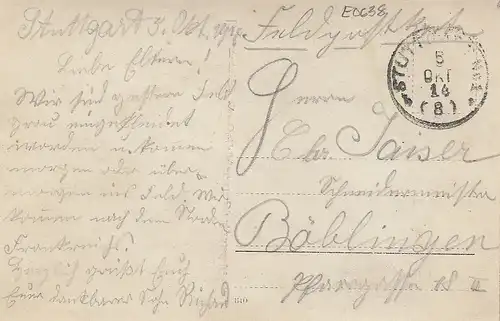 Stuttgart 5. Okt. 1914
Liebe Eltern!
Wir sind gestern Feld
grau eingekleidet
worden u. kommen
morgen oder über-
morgen ins Feld. Wir
kommen nach dem Norden
Frankreichs.
Herzlich grüßt Euch
Euer dankbarer Sohn Richard
E0638
Feldpostkarte
STUTTGART
5
OKT
14
(8)
Herrn
Chr. Kaiser
Schneidermeister
Böblingen
Pfarrgasse 18 II